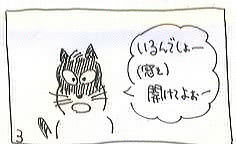 いるんでしょー
(窓を)
開けてよぉー
3